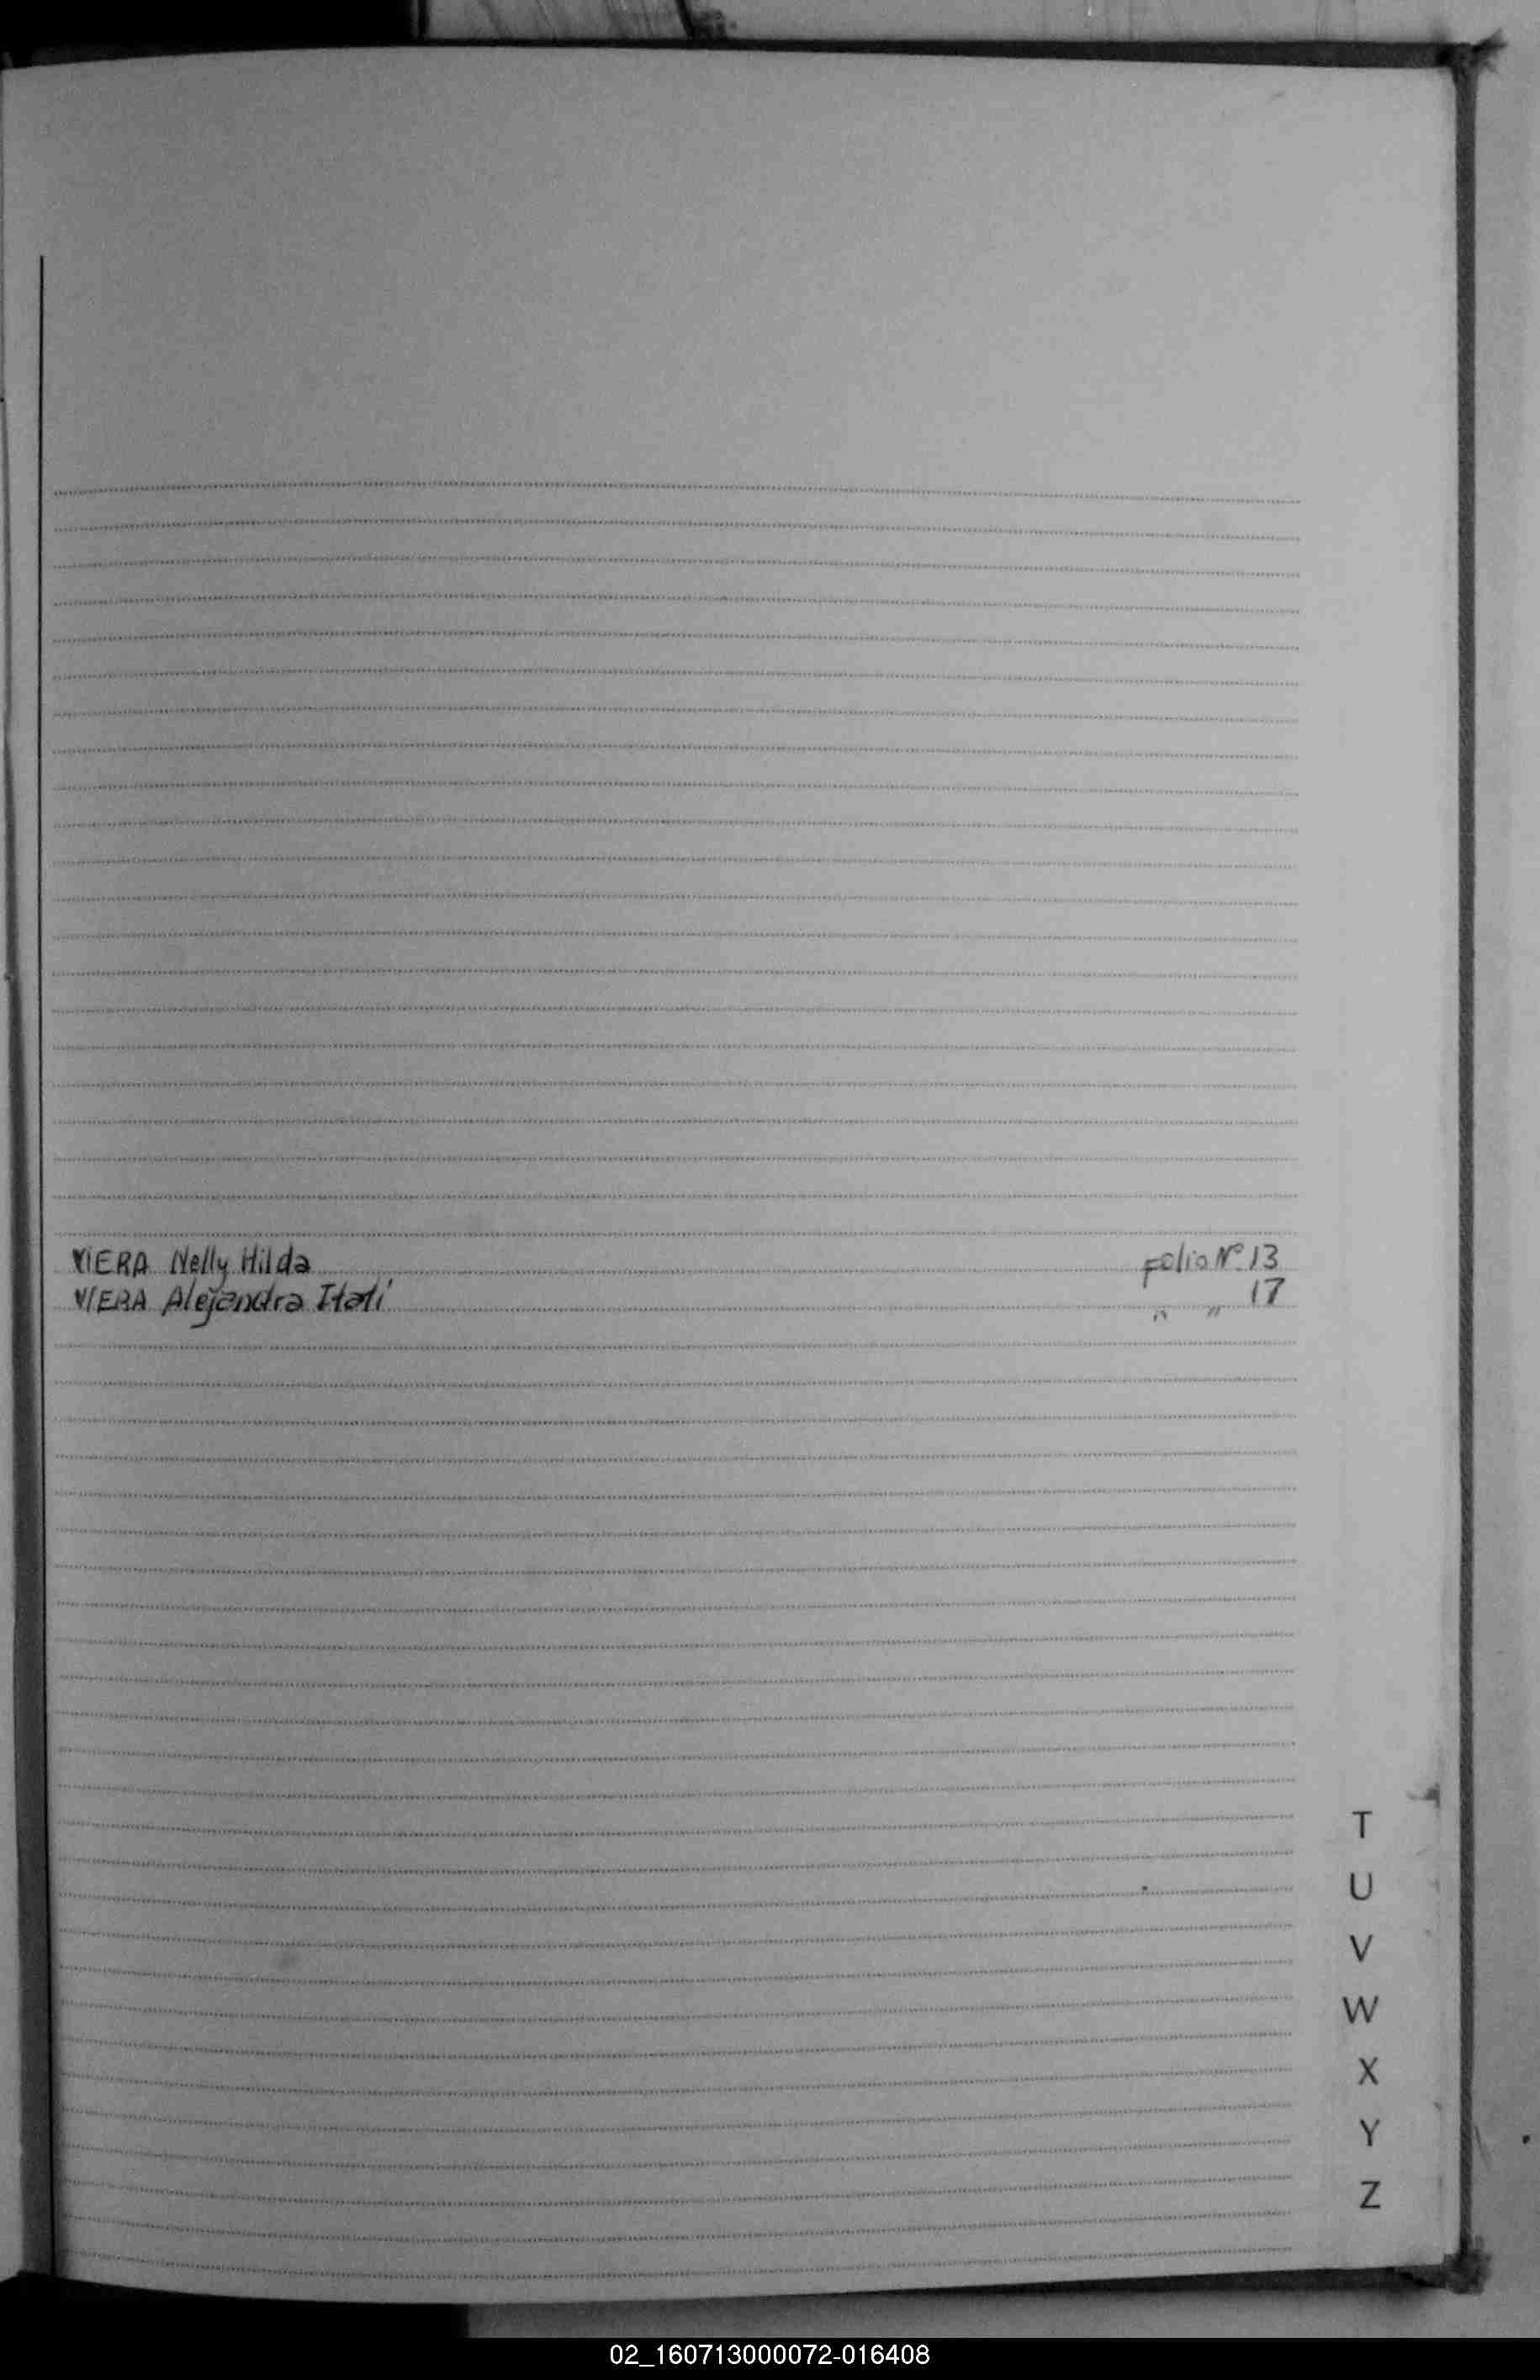 VIERA Nelly Hilda Folio Nº 13
VIERA Alejandra Itatí " " 17
T
U
V
W
X
Y
Z
02_160713000072-016408